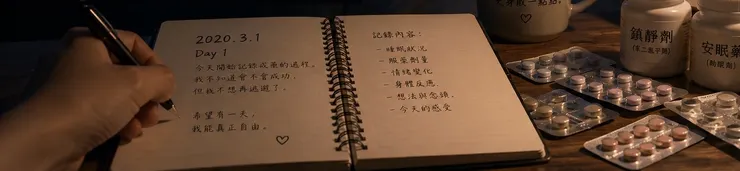 2020.3.1
Day 1
今天開始記錄戒藥的過程。
我不知道會不會成功,
但我不想再逃避了.
希望有一天,
我能真正自由。
記錄內容:
- 睡眠狀況
- 服藥劑量
- 情緒變化
- 身體反應
- 想法與念頭
- 今天的感受
一點。
鎮靜劑
安眠藥